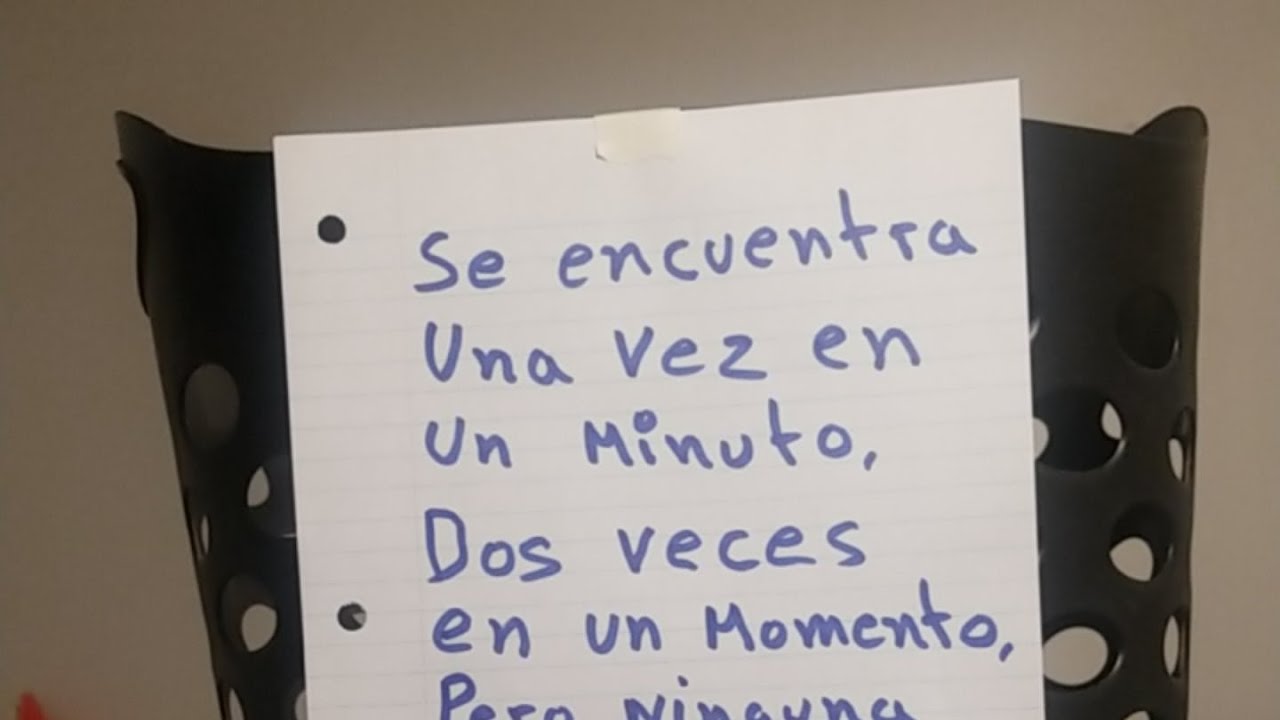 Se encuentra
Una vez en
un Minuto,
Dos veces
en un Momento,
Pero ninguna